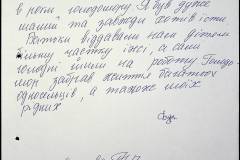 в роки голодомору Я був дуже
малий та завжди хотів їсти.
Батьки віддавали нам дітям
більшу частку їжі, а самі
голодні йшли на роботу Голодо
мор забрав життя багатьох
односельців, а також моїх
рідних